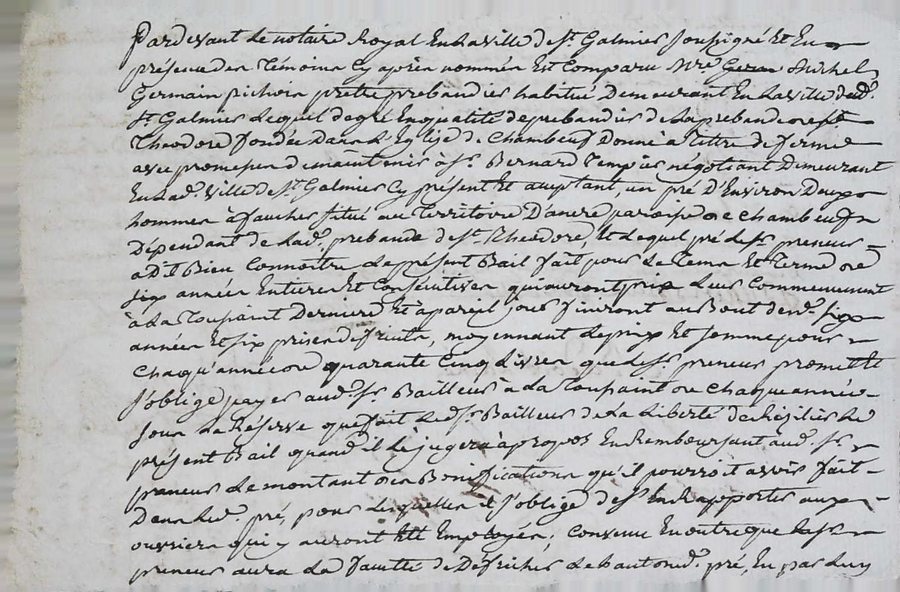 Pardevant Le notaire Royal En La ville de St. Galmier soussigné Et En
présence des Témoins Cy après nommés Est Comparu Mre Michel
Germain pichon prettre prebandier habitué Demeurant En La ville dud.
St. Galmier Lequel de gré En qualité de prebandier de La prebande de St.
Theodore fondée Dans L'Eglise de Chambeuf Donne à tittre de ferme
avec promesse de maintenir à Sr. Bernard Tempier négotiant Demeurant
En Lad. ville de St. Galmier Cy présent Et aceptant, un pré D'Environ Deux
hommes à faucher situé au Territoire D'ancre paroisse de Chambeuf
Dépendant de Lad. prebande de St. Theodore, Et Lequel pré Le Sr. preneur
a Dit Bien Connoître Le présent Bail fait pour Le Tems Et Terme de
six années Entieres Et Consécutives qui auront pris Leur Commencement
à La Toussaint Derniere Et à pareil jour finiront au Bout desd. six
années Et six prises de fruits, moyennant Le prix Et somme pour
Chaqu'année de quarante Cinq Livres que Le Sr. preneur promet Et
s'oblige payer aud. Sr. Bailleur à La Toussaint de Chaque année
sous La Réserve que fait Led. Sr. Bailleur de La Liberté de Résilier Le
présent Bail quand il Le jugera à propos En Remboursant aud. Sr.
preneur Le montant des Bonifications qu'il pourroit avoir fait
Dans Led. pré, pour Lesquelles il s'oblige de s'En Rapporter aux
ouvriers qui y auront Eté Employés; Convenu En outre que Le Sr.
preneur aura La faculté de Défricher Le haut dud. pré, En par Luy